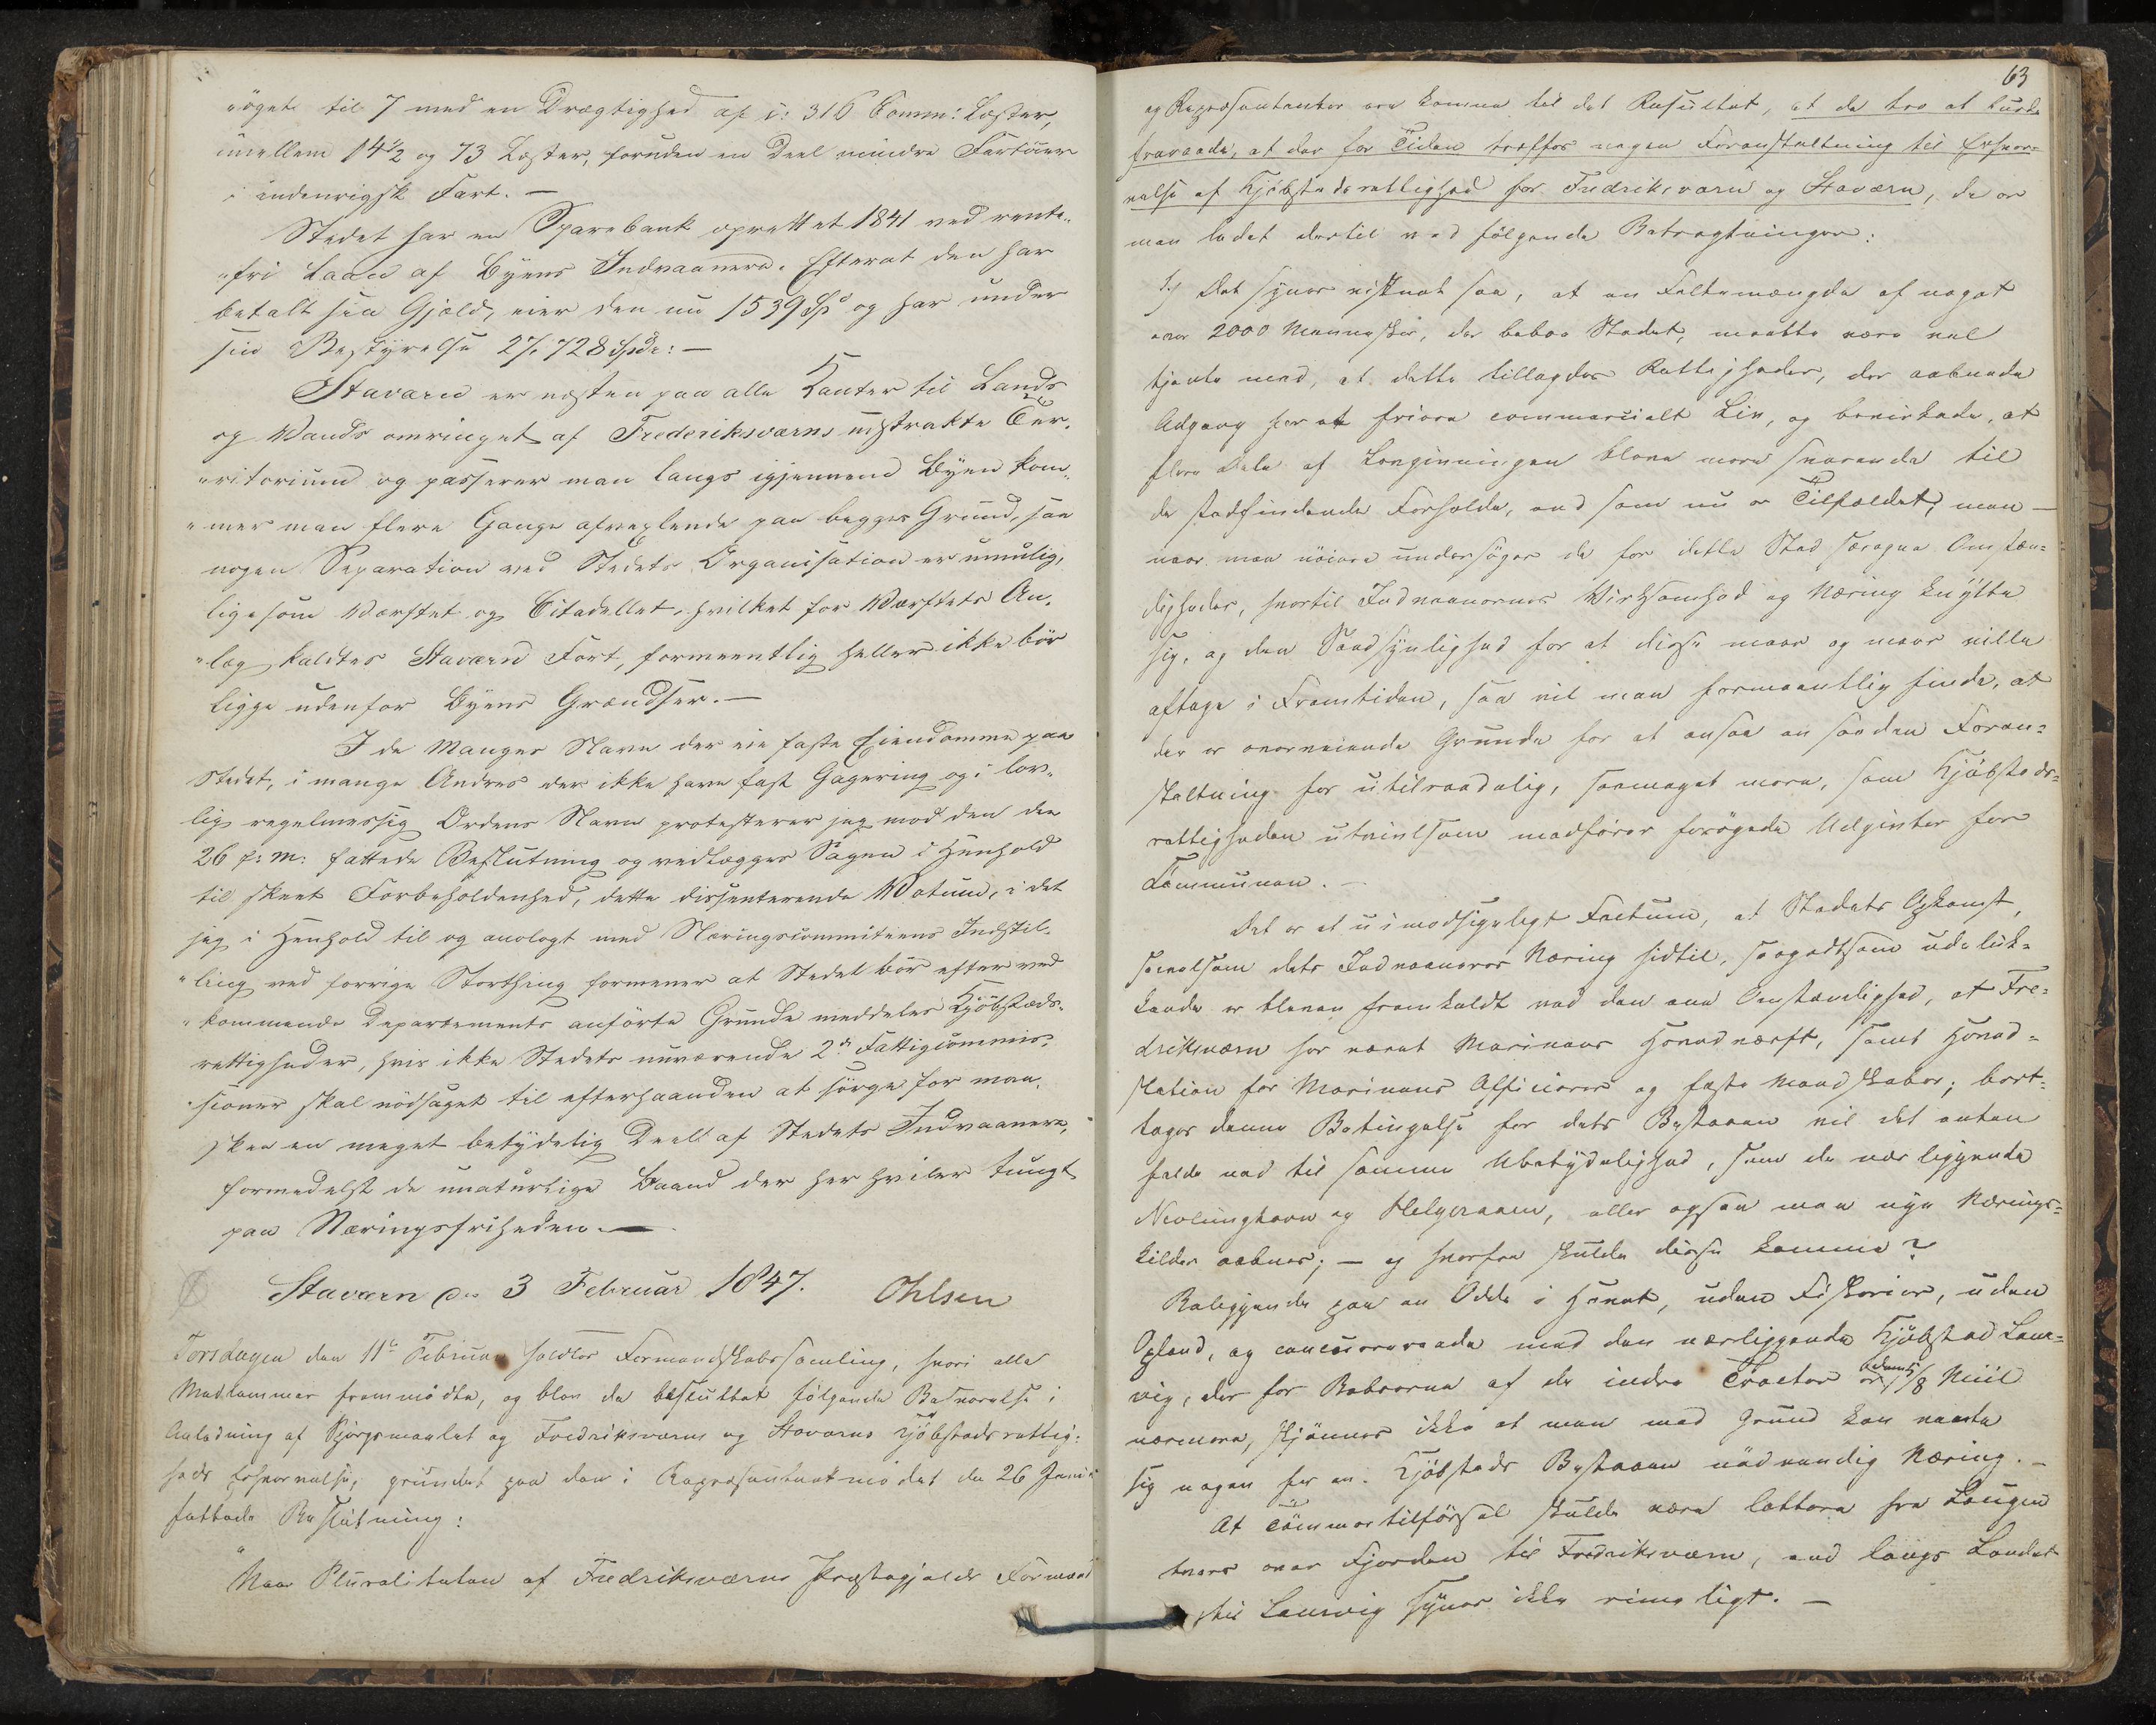 "öget til 7 med en Drægtighed af c: 316 Comm: Læster,
imellem 14½ og 73 Læster, foruden en Deel mindre Fartöier
i indenrigsk Fart. —
Stedet har en Sparebank oprettet 1841 ved rente-
"fri Laan af Byens Indvaanere. Efterat den har
betalt sin Gjæld, eier den nu 1539 Spd og har under
sin Bestyrelse 27,728 Spdr: —
Staværn er næsten paa alle Kanter til Lands
og Vands omringet af Frederiksværns udstrakte Ter-
"ritorium og passerer man langs igjennem Byen kom-
"mer man flere Gange afvexlende paa begges Grund, saa
nogen Separation ved Stedets Organisation er umulig,
ligesom Værftet og Citadellet, hvilket før Værftets An-
"læg kaldtes Staværn Fort, formeentlig heller ikke bör
ligge udenfor Byens Grændser. —
I de Manges Navn der eie faste Eiendomme paa
Stedet, i mange Andres der ikke have fast Gagering og i lov-
lig regelmessig Ordens Navn protesterer jeg mod den den
26 f: M: fattede Beslutning og vedlægges Sagen i Henhold
til skeet Forbeholdenhed, dette dissenterende Votum, i det
jeg i Henhold til og anologt med Næringscommiteens Indstil-
"ling ved forrige Storthing formener at Stedet bör efter ved-
"kommende Departements anförte Grunde meddeles Kjöbstads-
rettigheder, hvis ikke Stedets nuværende 2de Fattigcommis-
sioner skal nödsaget til efterhaanden at sörge for man-
skee en meget betydelig Deel af Stedets Indvaanere,
formedelst de unaturlige Baand der her hviler tungt
paa Næringsfriheden. —
Staværn den 3 Februar 1847. Ohlsen
Torsdagen den 11te Februar holdtes Formandskabssamling, hvori alle
Medlemmer fremmödte, og blev da besluttet fölgende Besvarelse i
Anledning af Spörgsmaalet og Fredriksværns og Staværns Kjöbstadsrettig-
heds Erhvervelse, grundet paa den i Repræsentantmödet den 26 Januar
fattede Beslutning:
"Naar Pluraliteten af Fredriksværns Præstegjelds Formænd
63
og Repræsentanter ere komne til det Resultat, at de tro at burde
fraraade, at der for Tiden træffes nogen Foranstaltning til Erhver-
velse af Kjöbstadsrettighed for Fredriksværn og Staværn, da er
man ledet dertil ved fölgende Betragtninger:
1.) Det synes vistnok saa, at en Folkemængde af noget
over 2000 Mennesker, der beboe Stedet, maatte være vel
tjente med, at dette tillagdes Rettigheder, der aabnede
Adgang for et friere commercielt Liv, og bevirkede, at
flere Dele af Lovgivningen bleve mere svarende til
de stedfindende Forholde, end som nu er Tilfældet; men —
naar man nöiere undersöger de for dette Sted særegne Omstæn-
digheder, hvortil Indvaanernes Virksomhed og Næring knytte
sig, og den Sandsynlighed for at disse meer og meer ville
aftage i Fremtiden, saa vil man formeentlig finde, at
der er overveiende Grunde for at ansee en saadan Foran-
staltning for utilraadelig, saameget mere, som Kjöbstads-
rettigheden utvivlsom medförer forögede Udgivter for
Communen. —
Det er et uimodsigeligt Factum, at Stedets Opkomst,
saavelsom dets Indvaaneres Næring hidtil, saagodtsom udeluk-
kende er bleven fremkaldt ved den ene Omstændighed, at Fre-
driksværn har været Marinens Hovedværft, samt Hoved-
station for Marinens Officierer og faste Mandskaber; bort-
tages denne Betingelse for dets Bestaaen vil det enten
falde ned til samme Ubetydelighed, som de nær liggende
Nevlunghavn og Helgeraaen, eller ogsaa maa nye Nærings-
kilder aabnes; — og hvorfra skulde disse komme?
Beliggende paa en Odde i Havet, uden Fiskerier, uden
Opland, og concurrerende med den nærliggende Kjöbstad Laur-
vig, der for Beboerne af de indre Tracter er 5/8 Miil
nærmere, skjönnes ikke at man med Grund kan vente
sig nogen for en Kjöbstads Bestaaen nödvendig Næring. —
At Tömmertilförsel skulde være lettere fra Lougen
tvers over Fjorden til Fredriksværn, end langs Landet
til Laurvig synes ikke rimeligt. —